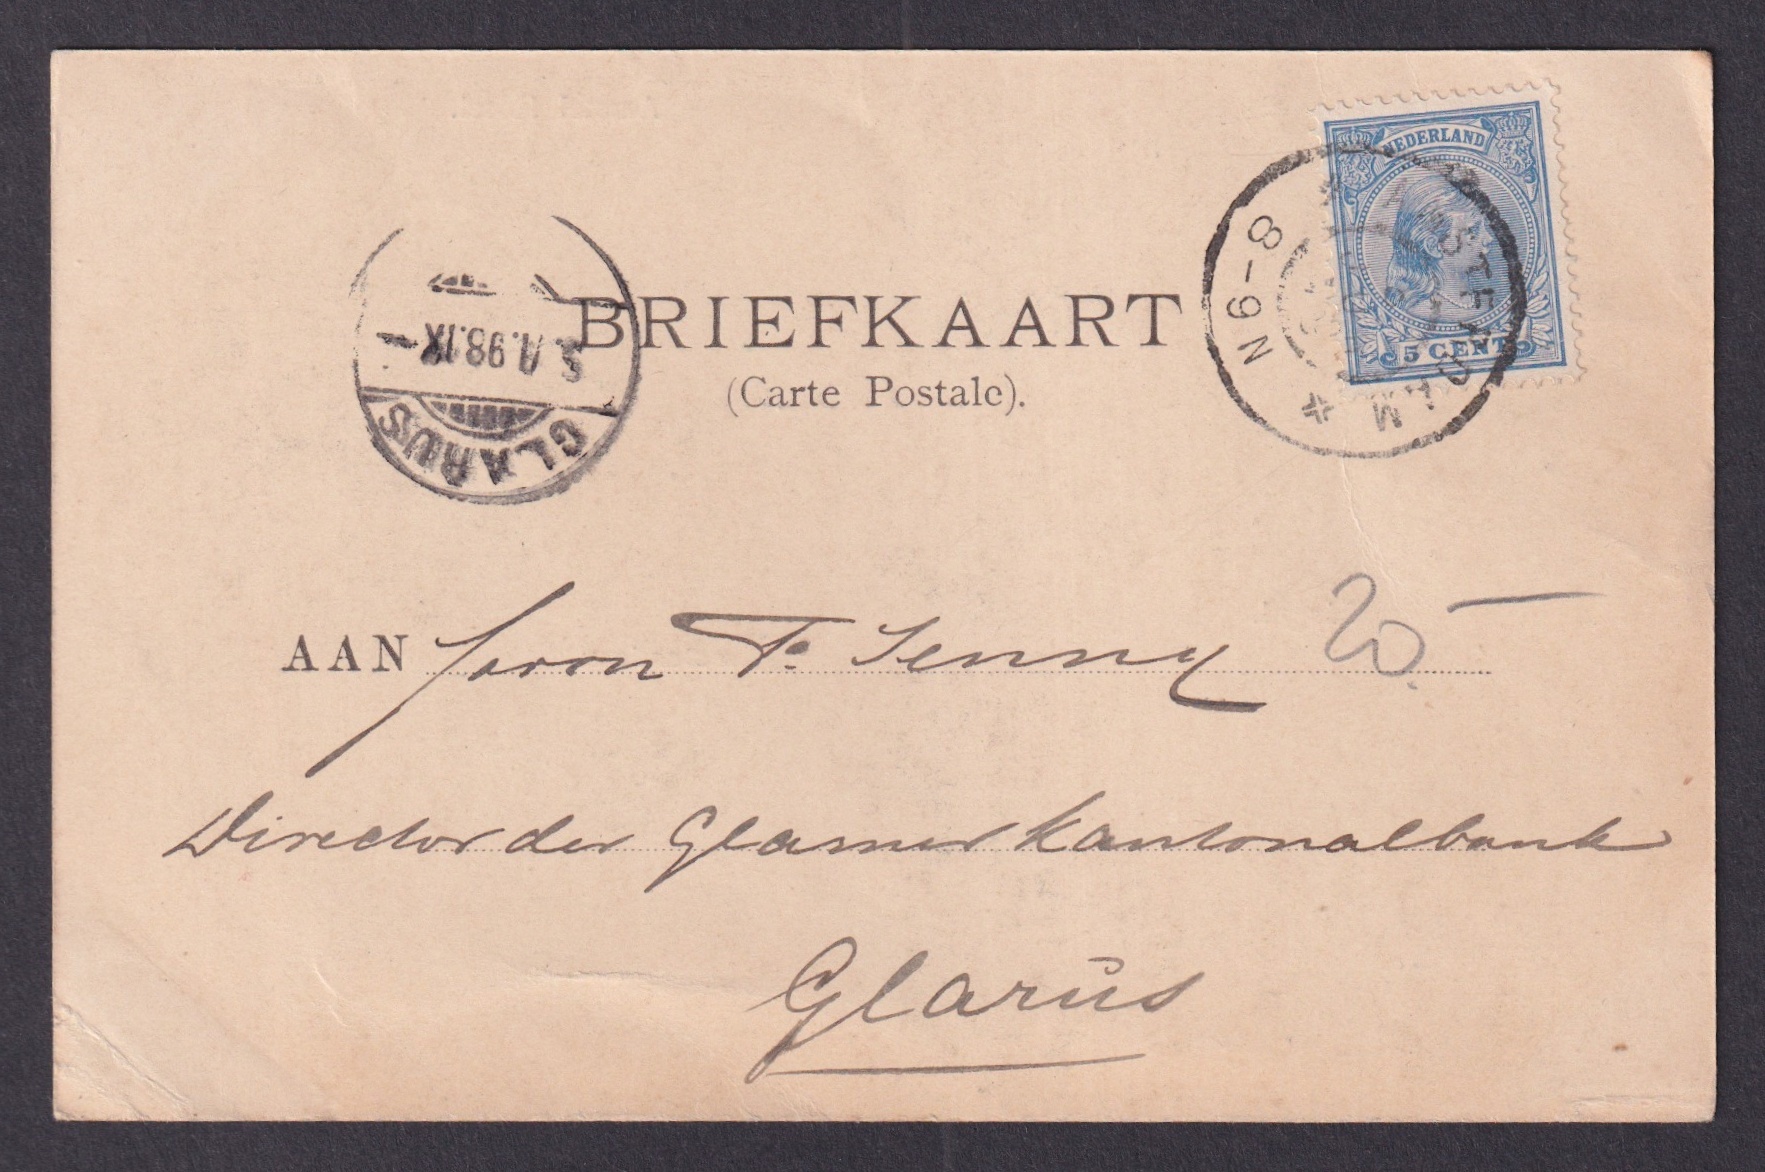 NEDERLAND
5 CENT
AMSTERDAM
N 6-8
BRIEFKAART
(Carte Postale).
5.V.98.IX
GLARUS
AAN Herrn F. Jenny
20.-
Director der Glarner Kantonalbank
Glarus